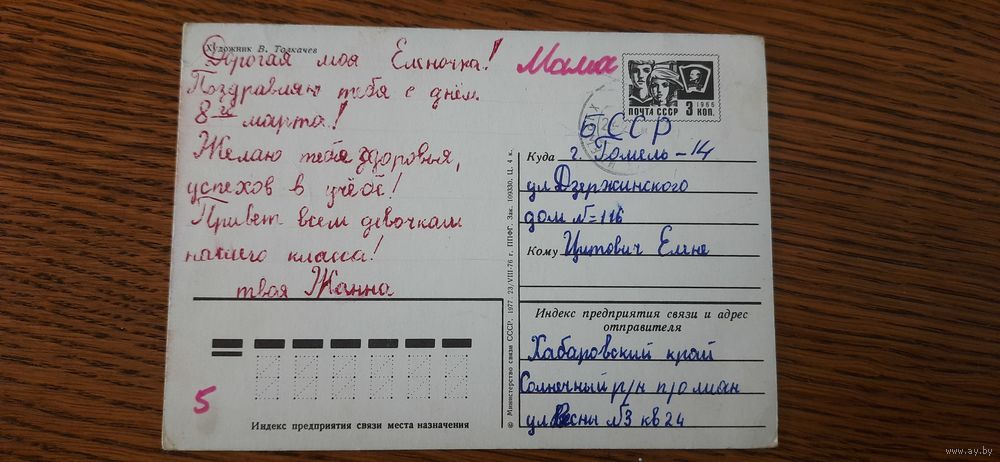 Художник В. Толкачев
Дорогая моя Еленочка!
Поздравляю тебя с днём
8ᵍᵒ марта!
Желаю тебе здоровья,
успехов в учёбе!
Привет всем девочкам
нашего класса!
твоя Жанна
5
Индекс предприятия связи места назначения
© Министерство связи СССР. 1977 23/VIII-76 г. ППФГ. Зак. 109330. Ц. 4 к.
Мама
ПОЧТА СССР
1966
3 КОП.
БССР
Куда г. Гомель-14
ул Дзержинского
дом №116
Кому Цитович Елене
Индекс предприятия связи и адрес
отправителя
Хабаровский край
Солнечный р/н
ул Весны №3 кв 24
www.ay.by